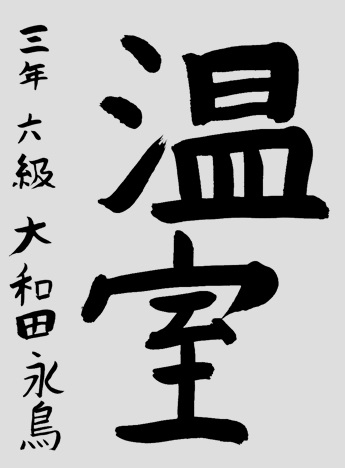 温室
三年 六級 大和田 永鳥